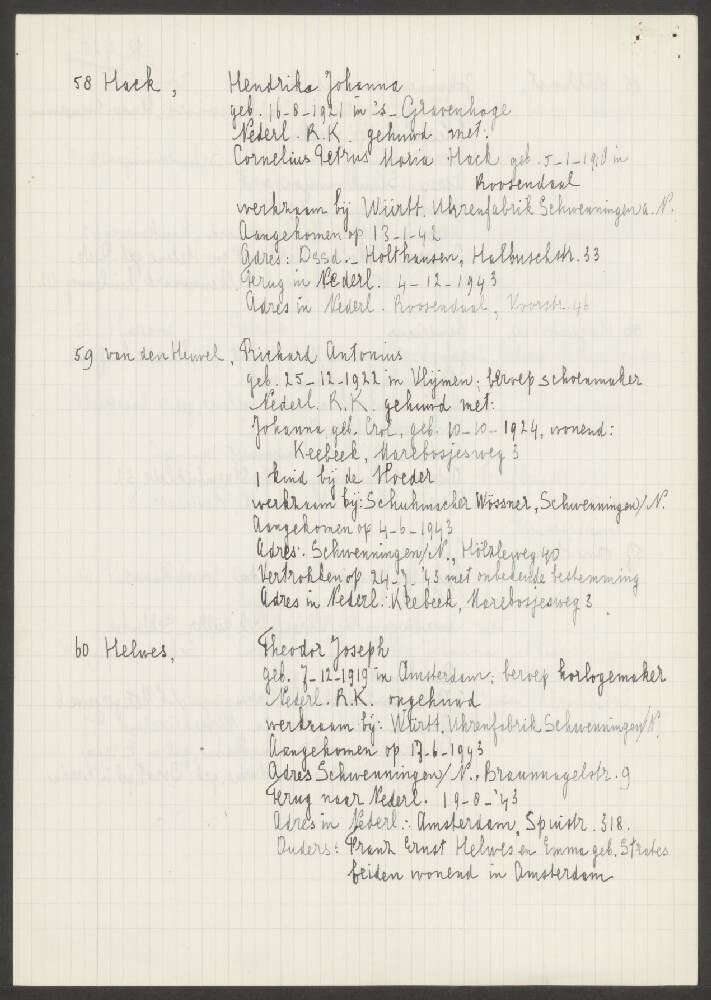 58 Hack, Hendrika Johanna
geb. 16-8-1921 in 's-Gravenhage
Nederl. R.K. gehuwd met:
Cornelius Petrus Maria Hack geb. 5-1-1918 in
Roosendaal
werkzaam bij Württ. Uhrenfabrik Schwenningen a. N.
Aangekomen op 13-1-42
Adres: Dssd.- Holthausen, Halbuschstr. 33
Terug in Nederl. 4-12-1943
Adres in Nederl. Roosendaal, Voorstr. 46
59 van den Heuvel, Richard Antonius
geb. 25-12-1922 in Vlijmen; beroep schoenmaker
Nederl. R.K. gehuwd met:
Johanna, geb. Crol, geb. 10-10-1924, wonend:
Keebeek, Marebosjesweg 3
1 kind bij de Moeder
werkzaam bij: Schuhmacher Wössner, Schwenningen/N.
Aangekomen op 4-6-1943
Adres: Schwenningen/N., Hölzleweg 40
Vertrokken op 24-7-'43 met onbekende bestemming
Adres in Nederl.: Keebeek, Marebosjesweg 3.
60 Helwes, Theodor Joseph
geb. 7-12-1919 in Amsterdam; beroep horlogemaker
Nederl. R.K. ongehuwd
werkzaam bij: Württ. Uhrenfabrik Schwenningen/N.
Aangekomen op 17-6-1943
Adres Schwenningen/N., Braunnagelstr. 9
Terug naar Nederl. 19-8-'43
Adres in Nederl.: Amsterdam, Spuistr. 318.
Ouders: Franz Ernst Helwes en Emma geb.
beiden wonend in Amsterdam